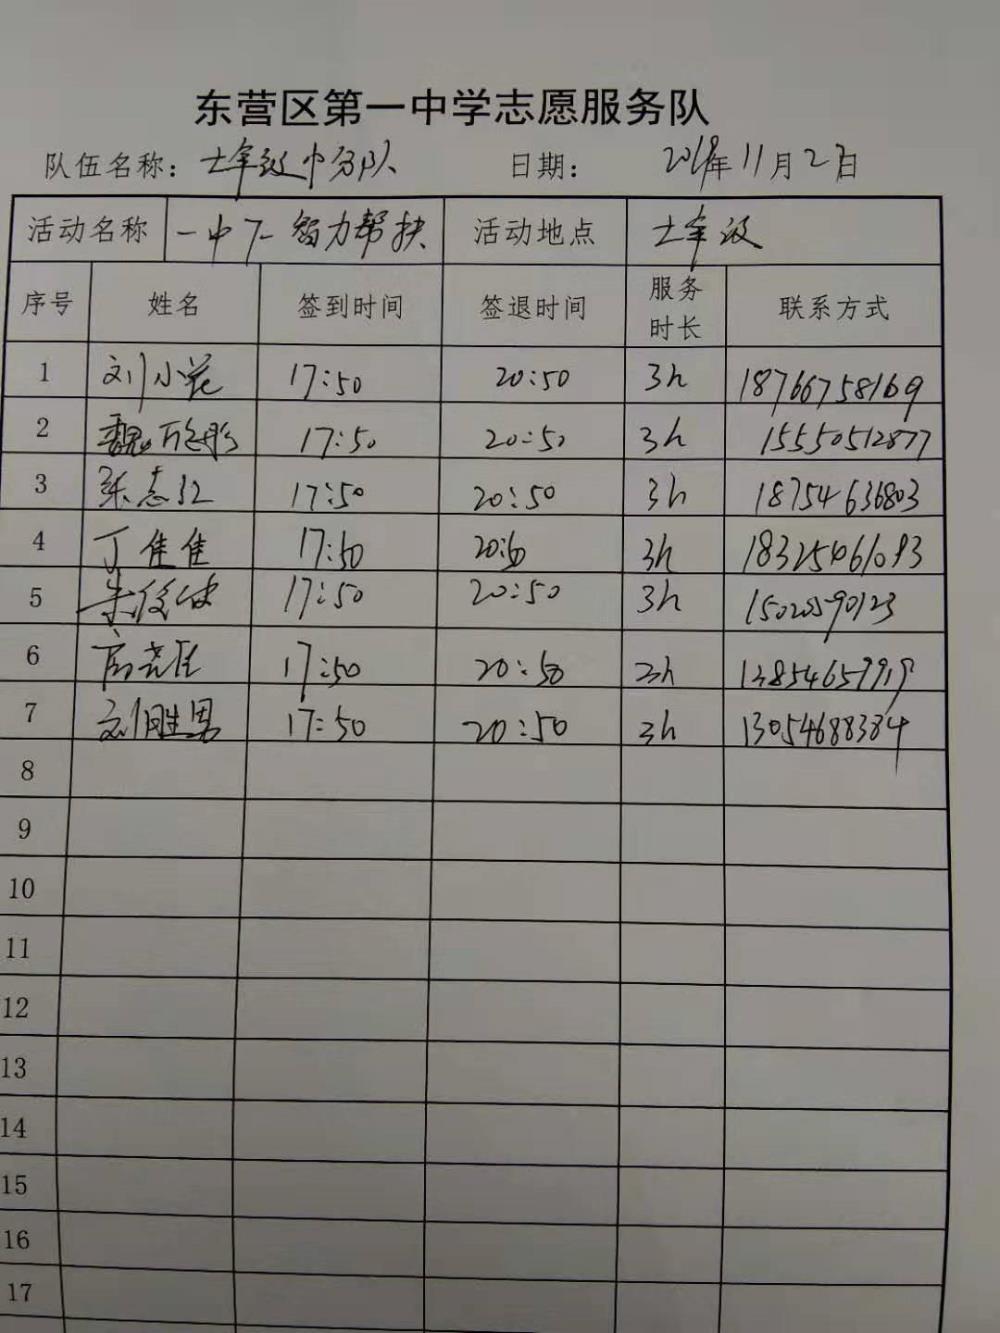 东营区第一中学志愿服务队
队伍名称：七年级中分队 日期： 2018年11月2日
活动名称 一中丁一智力帮扶 活动地点 七年级
序号 姓名 签到时间 签退时间 服务时长 联系方式
1 刘小花 17:50 20:50 3h 18766758169
2 魏万彤 17:50 20:50 3h 15550512877
3 张志红 17:50 20:50 3h 18754636803
4 丁佳佳 17:50 20:50 3h 18325461093
5 17:50 20:50 3h 15020590123
6 17:50 20:50 3h 13854657919
7 刘胜男 17:50 20:50 3h 13054688384
8
9
10
11
12
13
14
15
16
17